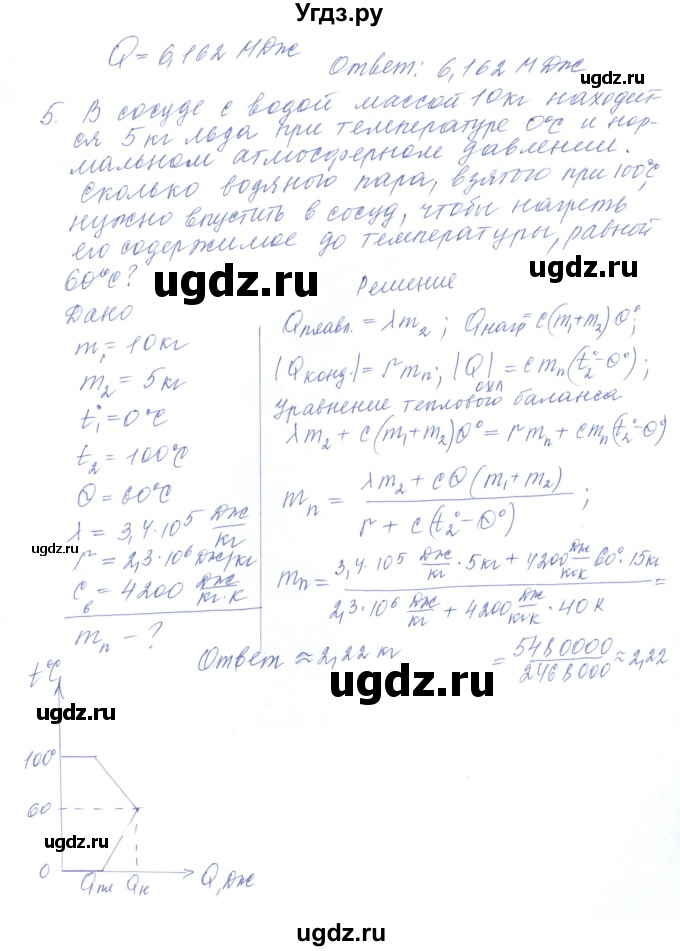 Угдз.ру
Q = 6,162 МДж
Ответ: 6,162 МДж
ugdz.ru
5. В сосуде с водой массой 10кг находит-
ся 5кг льда при температуре 0°С и нор-
мальном атмосферном давлении.
Сколько водяного пара, взятого при 100°С,
нужно впустить в сосуд, чтобы нагреть
его содержимое до температуры, равной
60°С?
ugdz.ru
ugdz.ru
Дано
m₁ = 10кг
m₂ = 5кг
t₁° = 0°С
t₂ = 100°С
Θ = 60°С
λ = 3,4·10⁵ Дж/кг
r = 2,3·10⁶ Дж/кг
c в = 4200 Дж/кг·К
mп – ?
ugdz.ru
Решение
Qплавл. = λm₂; Qнагр = c(m₁+m₂)Θ°;
|Qконд.| = rmп; |Q охл| = cmп(t₂°–Θ°);
Уравнение теплового баланса
λm₂ + c(m₁+m₂)Θ° = rmп + cmп(t₂°–Θ°)
mп = (λm₂ + cΘ(m₁+m₂)) / (r + c(t₂°–Θ°));
mп = (3,4·10⁵ Дж/кг · 5кг + 4200 Дж/кг·К 60° · 15кг) / (2,3·10⁶ Дж/кг + 4200 Дж/кг·К · 40К) =
= 5480000/2468000 ≈ 2,22
Ответ ≈ 2,22 кг
ugdz.ru
t°С
ugdz.ru
100°
60
ugdz.ru
0
Qпл
Qн
Q, Дж
ugdz.ru